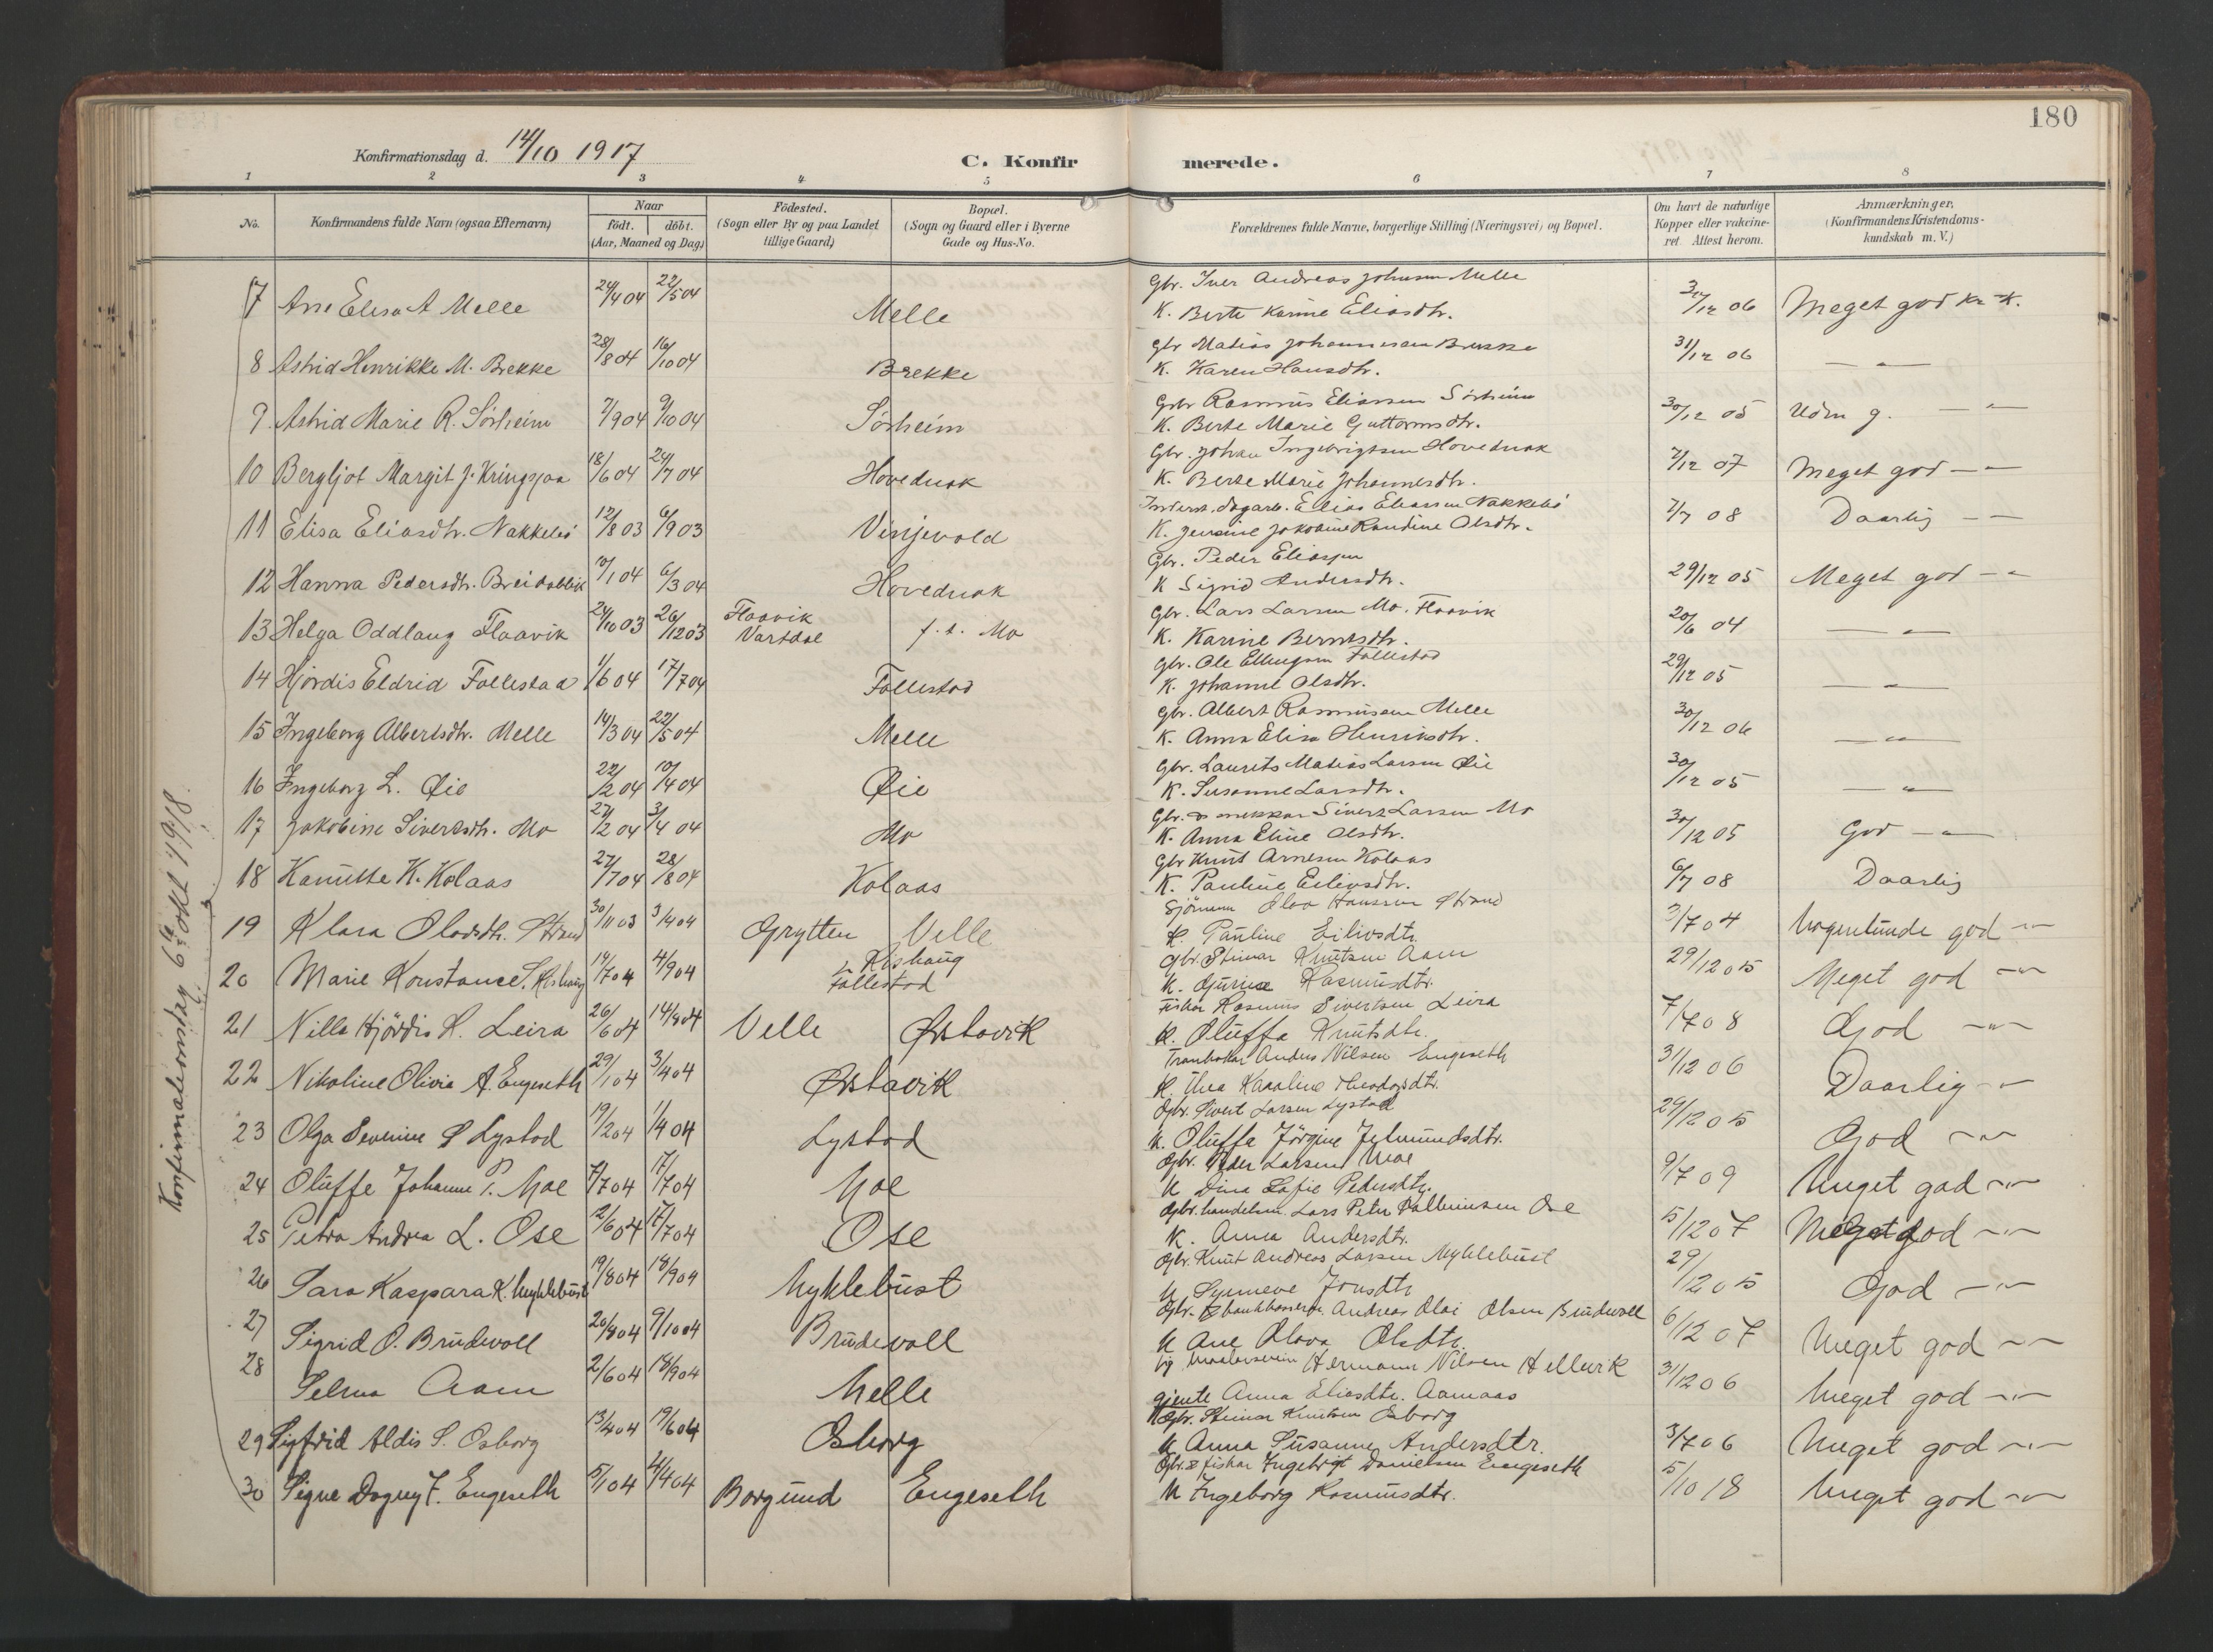 180
Konfirmationsdag d. 14/10 1917
C. Konfirmerede.
1 2 3 4 5 6 7 8
No.
Konfirmandens fulde Navn (ogsaa Efternavn)
Naar
födt. döbt.
(Aar, Maaned og Dag)
Födested.
(Sogn eller By og paa Landet
tillige Gaard)
Bopæl.
(Sogn og Gaard eller i Byerne
Gade og Hus-No.
Forældrenes fulde Navne, borgerlige Stilling (Næringsvei) og Bopæl.
Om havt de naturlige
Kopper eller vakcine-
ret. Attest herom.
Anmærkninger,
(Konfirmandens Kristendoms-
kundskab m. V.)
Konfirmationsdag 6te okt 1918.
7 Ane Elisa A Melle 24/4 04 22/5 04 Melle Gbr. Iver Andreas Johnsen Melle
K. Berte Karine Eliasdtr. 31/12 06 Meget god Kr. K.
8 Astrid Henrikke M. Brekke 28/8 04 16/10 04 Brekke Gbr Matias Johannesen Brekke
K. Karen Hansdtr. 31/12 06 — " —
9. Astrid Marie R. Sørheim 7/9 04 9/10 04 Sørheim Gbr Rasmus Eliassen Sörheim
K. Berte Marie Guttormsdtr. 30/12 05 Udm g. — " —
10 Bergljot Margit J. Kringsjaa 18/6 04 24/7 04 Hovednak Gbr. Johan Ingebrigtsen Hovednak
K. Berte Marie Johannesdtr. 7/12 07 Meget god — " —
11 Elisa Eliasdtr. Nakkelid 12/8 03 6/9 03 Vinjevold Inderst. dagarb. Elias Eliassen Nakkelid
K. Jensine Jakobine Randine Olsdtr. 7/7 08 Daarlig — " —
12 Hanna Pedersdtr. Breidablik 10/1 04 6/3 04 Hovednak Gbr. Peder Eliassen
K Sigrid Andersdtr. 29/12 05 Meget god — " —
13 Helga Oddlaug Flaavik 24/10 03 26/12 03 Flaavik
Vartdal f. t. Mo Gbr. Lars Larsen Mo. Flaavik
K. Karine Berntsdtr. 20/6 04 — " —
14 Hjördis Eldrid Follestad 1/6 04 17/7 04 Follestad Gbr. Ole Ellingsen Follestad
K. Johanne Olsdtr. 29/12 05 — " —
15 Ingeborg Albertsdtr. Melle 14/3 04 22/5 04 Melle Gbr. Albert Rasmussen Melle
K. Anna Elisa Henriksdtr. 30/12 06 — " —
16 Ingeborg L. Øie 22/2 04 10/4 04 Øie Gbr. Laurits Matias Larsen Øie
K. Susanne Larsdtr. 30/12 05 — " —
17 Jakobine Sivertsdtr. Mo 27/2 04 3/4 04 Mo Gbr. Sivert Larsen Mo
K. Anna Eline Olsdtr. 30/12 05 God — " —
18 Kanutte K. Kolaas 27/7 04 28/8 04 Kolaas Gbr Knut Arnesen Kolaas
K. Pauline Eilivsdtr. 6/7 08 Daarlig
19 Klara Olavsdtr. Strand 30/11 03 3/4 04 Grytten Velle Sjömann Olav Hanssen Strand
K. Pauline Eilivsdtr. 3/7 04 Nogenlunde god — " —
20 Marie Konstance S. Rishaug 14/7 04 4/9 04 Rishaug
Follestad Gbr Steinar Knutsen Aam
K. Gurine Rasmusdtr. 29/12 05 Meget god — " —
21 Nilla Hjördis R. Leira 26/6 04 14/8 04 Velle Ørstavik Fisker Rasmus Sivertsen Leira
K. Oluffa Knutsdtr. 7/7 08 God — " —
22 Nikoline Olivia A. Engeseth 29/1 04 3/4 04 Ørstavik Tranbrker Anders Nilsen Engeseth
K. Thea Karoline 31/12 06 Daarlig — " —
23 Olga Severine S Lystad 19/2 04 1/4 04 Lystad Gbr. Sivert Larsen Lystad
K. Oluffa Jörgine Jetmundsdtr. 29/12 05 God — " —
24 Oluffe Johanne P. Moe 7/7 04 17/7 04 Moe Gbr. Peder Larsen Moe
K Dina Sofie Pedersdtr. 9/7 09 Meget god — " —
25 Petra Andrea L. Ose 12/6 04 17/7 04 Ose Gbr. handelsm. Lars Peter Ose
K. Anna Andersdtr. 5/12 07 Meget god — " —
26 Sara Kaspara K. Myklebust 19/8 04 18/9 04 Myklebust Gbr. Knut Andreas Larsen Myklebust
K Synneve Jonsdtr 29/12 05 God — " —
27 Sigrid O. Brudevoll 20/8 04 9/10 04 Brudevoll Gbr. & bankkasserer Andreas Olai Olsen Brudevoll
K Ane Olava Olsdtr. 6/12 07 Meget god — " —
28 Selma Aam 2/6 04 18/9 04 Melle Hermann Nilsen Hellevik
gjente Anna Eliasdtr. Aamaas 31/12 06 Meget god — " —
29 Sigfrid Aldis S. Osborg 13/4 04 19/6 04 Osborg Gbr. Steinar Knutsen Osborg
K Anna Susanne Andersdtr. 3/7 06 Meget god — " —
30 Signe Dagny I. Engeseth 5/1 04 4/4 04 Borgund Engeseth Gbr. & fisker Ingebrigt Danielsen Engeseth
K Ingeborg Rasmusdtr. 5/10 18 Meget god — " —